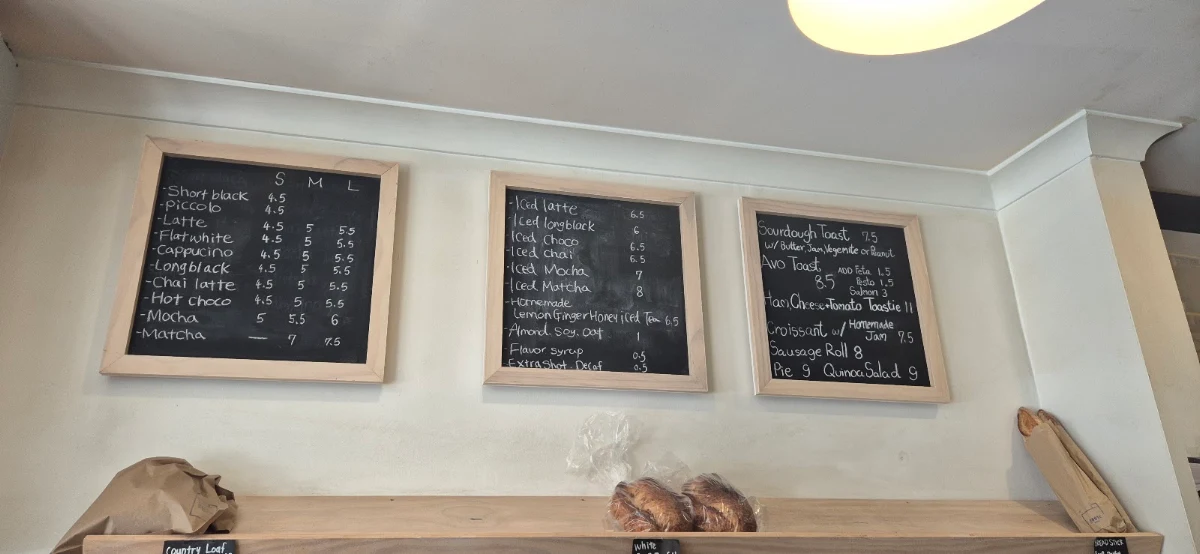 S M L
-Short black 4.5
-piccolo 4.5
-Latte 4.5 5 5.5
-Flatwhite 4.5 5 5.5
-Cappucino 4.5 5 5.5
-Longblack 4.5 5 5.5
-Chai latte 4.5 5 5.5
-Hot choco 4.5 5 5.5
-Mocha 5 5.5 6
-Matcha — 7 7.5
-Iced latte 6.5
-Iced longblack 6
-Iced Choco 6.5
-Iced chai 6.5
-Iced Mocha 7
-Iced Matcha 8
-Homemade
Lemon Ginger Honey iced Tea 6.5
-Almond. Soy. Oat 1
-Flavor syrup 0.5
-Extra shot. Decaf 0.5
Sourdough Toast 7.5
w/ Butter, Jam, Vegemite or Peanut
Avo Toast 8.5
ADD Feta 1.5
Pesto 1.5
Salmon 3
Ham Cheese+Tomato Toastie 11
Croissant w/ Homemade
Jam 7.5
Sausage Roll 8
Pie 9 Quinoa Salad 9
Country Loaf
White